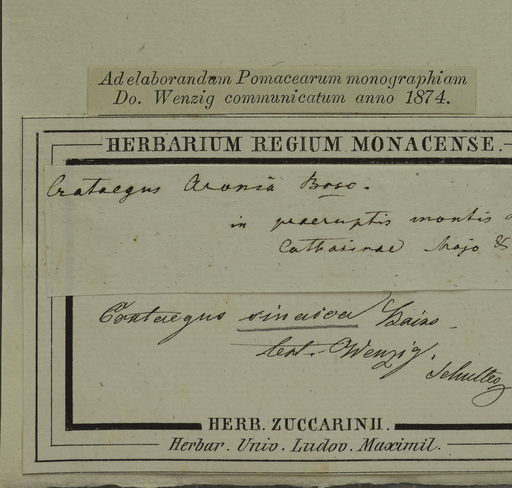 Ad elaborandam Pomacearum monographiam
Do. Wenzig communicatum anno 1874.
HERBARIUM REGIUM MONACENSE.
Crataegus Aronia Bosc.
in praeruptis montis
Catharinae Majo &
Crataegus sinaica Boiss
test. Wenzig.
Schultes
HERB. ZUCCARINII.
Herbar. Univ. Ludov. Maximil.